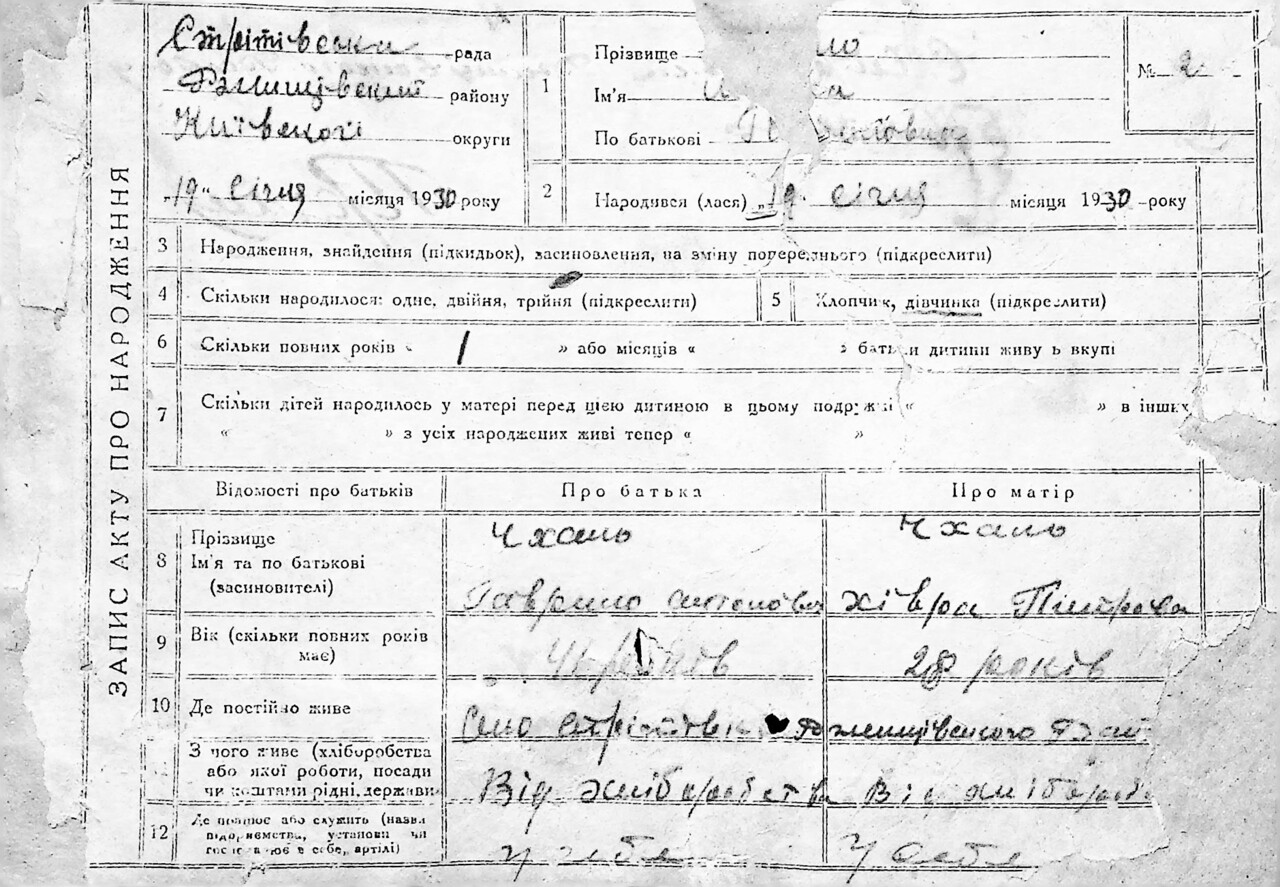 ЗАПИС АКТУ ПРО НАРОДЖЕННЯ
Стрітівська рада
району
Київської округи
„19" січня місяця 1930 року
1 Прізвище
Ім'я
По батькові
№ 2
2 Народився (лася) „19 січня місяця 1930 року
3 Народження, знайдення (підкидьок), засиновлення, на зміну попереднього (підкреслити)
4 Скільки народилося: одне, двійня, трійня (підкреслити)
5 Хлопчик, дівчинка (підкреслити)
6 Скільки повних років « » або місяців « » батьки дитини живуть вкупі
7 Скільки дітей народилось у матері перед цією дитиною в цьому подружжі « » в інших
« » з усіх народжених живі тепер « »
Відомості про батьків Про батька Про матір
8 Прізвище Чхало Чхало
Ім'я та по батькові
(засиновителі) Гаврило Хівра Пітрова
9 Вік (скільки повних років має) років 28 років
10 Де постійно живе Село Стрітівка
З чого живе (хліборобства Від хліборобства Від
або якої роботи, посади
чи коштами рідні, держави
12 Де працює або служить (назва У себе У себе
підприємства, установи чи
в себе, артілі)